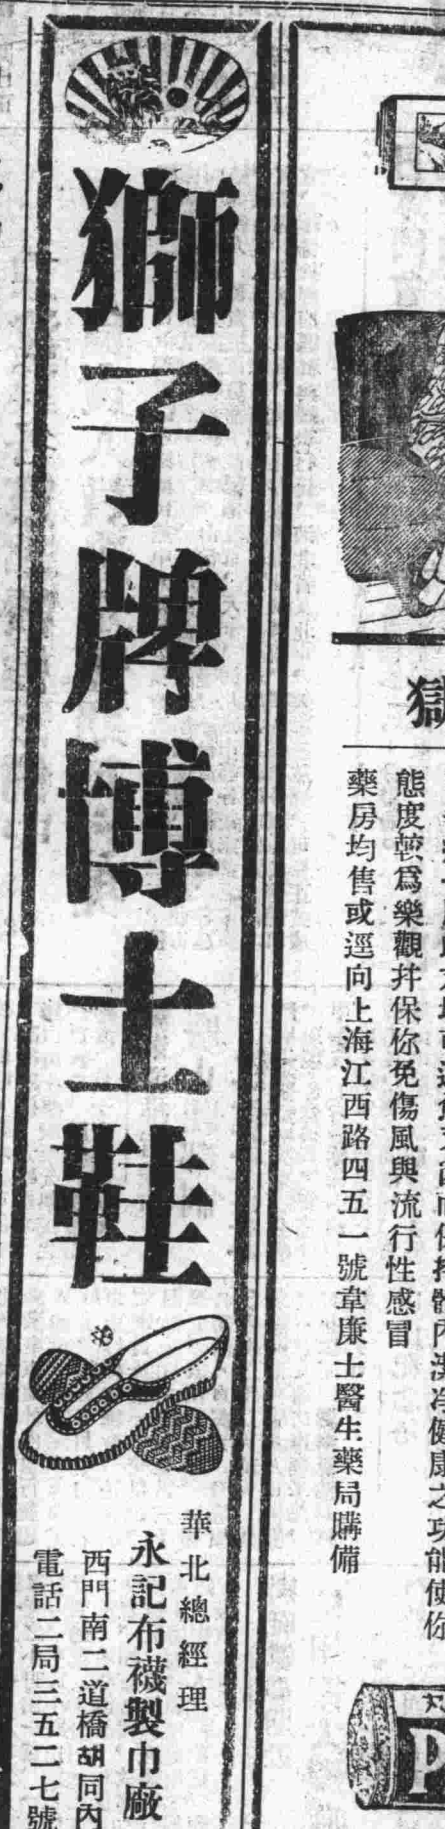 獅子牌博士鞋
華北總經理
永記布襪製巾廠
西門南二道橋胡同內
電話二局三五二七號
獄
態度較爲樂觀幷保你免傷風與流行性感冒
藥房均售或逕向上海江西路四五一號韋廉士醫生藥局購備
P